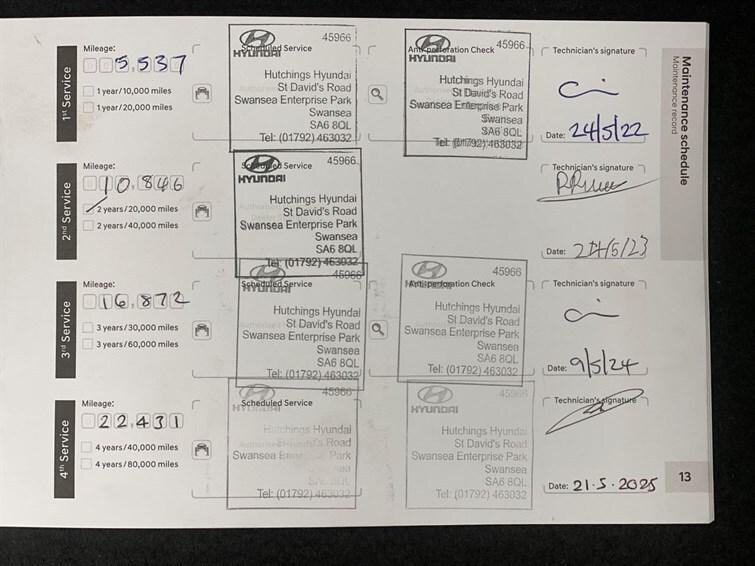 Maintenance schedule
Maintenance record
1st Service
Mileage:
5,537
1 year/10,000 miles
1 year/20,000 miles
Scheduled Service
45966
HYUNDAI
Hutchings Hyundai
St David's Road
Swansea Enterprise Park
Swansea
SA6 8QL
Tel: (01792) 463032
Anti-perforation Check
45966
HYUNDAI
Hutchings Hyundai
St David's Road
Swansea Enterprise Park
Swansea
SA6 8QL
Tel: (01792) 463032
Technician's signature
Date: 24/5/22
2nd Service
Mileage:
10,846
2 years/20,000 miles
2 years/40,000 miles
Scheduled Service
45966
HYUNDAI
Hutchings Hyundai
St David's Road
Swansea Enterprise Park
Swansea
SA6 8QL
Tel: (01792) 463032
Technician's signature
Date: 24/5/23
3rd Service
Mileage:
16,872
3 years/30,000 miles
3 years/60,000 miles
Scheduled Service
45966
HYUNDAI
Hutchings Hyundai
St David's Road
Swansea Enterprise Park
Swansea
SA6 8QL
Tel: (01792) 463032
Anti-perforation Check
45966
Hutchings Hyundai
St David's Road
Swansea Enterprise Park
Swansea
SA6 8QL
Tel: (01792) 463032
Technician's signature
Date: 9/5/24
4th Service
Mileage:
22,431
4 years/40,000 miles
4 years/80,000 miles
Scheduled Service
45966
HYUNDAI
Hutchings Hyundai
St David's Road
Swansea Enterprise Park
Tel: (01792) 463032
45966
HYUNDAI
Hutchings Hyundai
St David's Road
Swansea Enterprise Park
Swansea
SA6 8QL
Tel: (01792) 463032
Technician's signature
Date: 21.5.2025
13